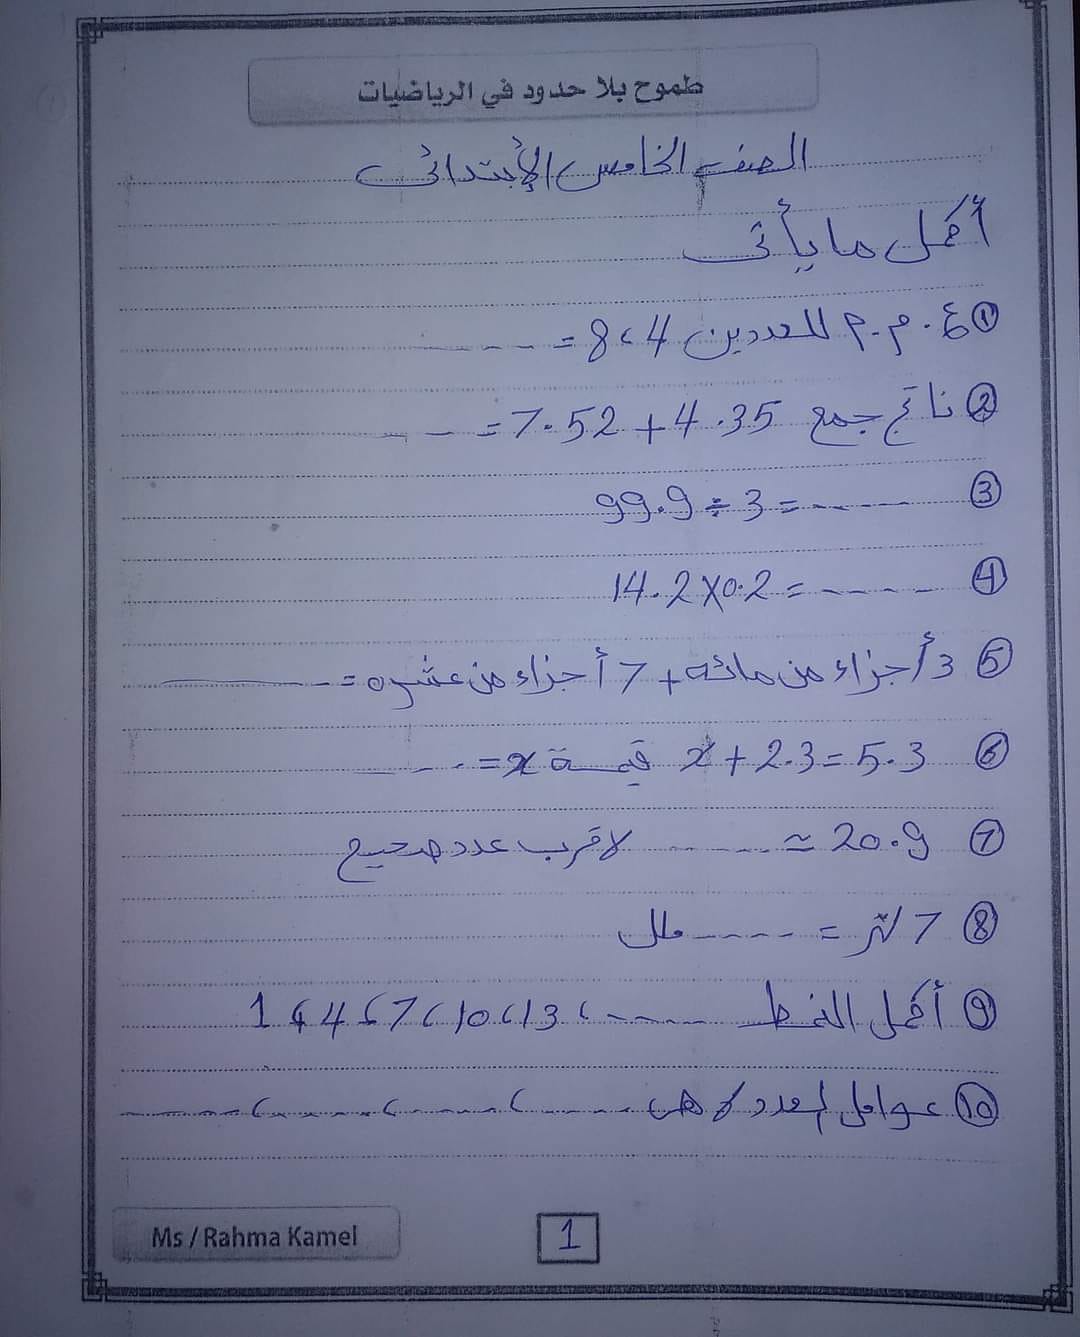 طموح بلا حدود في الرياضيات
الصف الخامس الإبتدائى
أكمل ما يأتى
① ع.م.م للعددين 4 ، 8 = -----
② ناتج جمع 7.52 + 4.35 = ----
③ 99.9 ÷ 3 = -----
④ 14.2 × 0.2 = -----
⑤ 3 أجزاء من مائة + 7 أجزاء من عشره = -----
⑥ x + 2.3 = 5.3 قيمة x = -----
⑦ 20.9 ≈ ----- لاقرب عدد صحيح
⑧ 7 لتر = ----- ملل
⑨ أكمل النمط 1 ، 4 ، 7 ، 10 ، 13 ، -----
⑩ عوامل لعدد هى ----- ، ----- ، ----- ، -----
Ms / Rahma Kamel
1